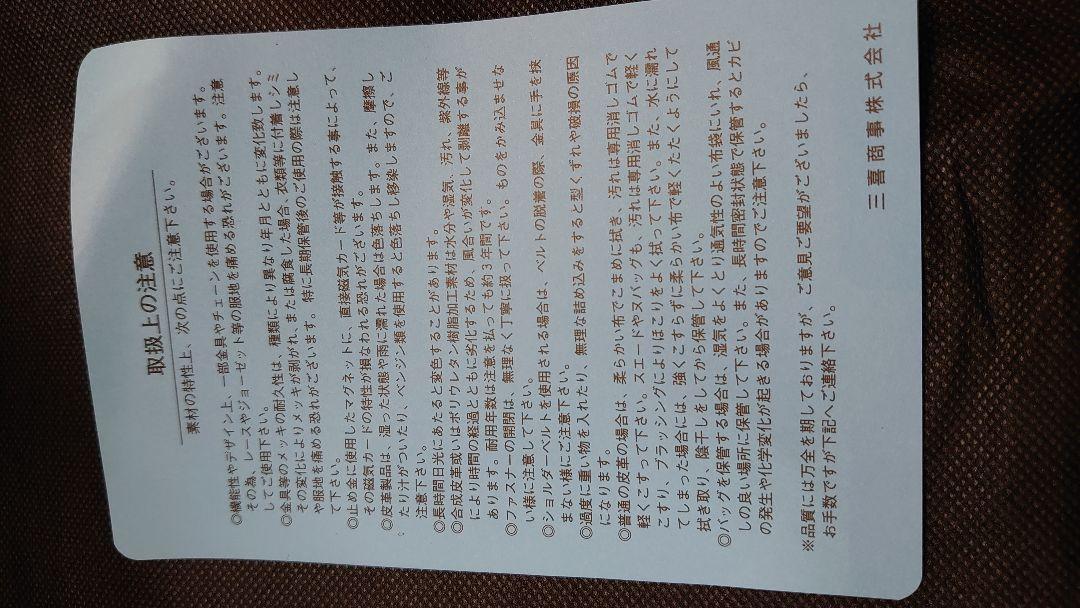 取扱上の注意
素材の特性上、次の点にご注意下さい。
◎機能性やデザイン上、一部金具やチェーンを使用する場合がございます。
その為、レースやジョーゼット等の服地を痛める恐れがございます。注意
してご使用下さい。
◎金具等のメッキの耐久性は、種類により異なり年月とともに変化致します。
その変化によりメッキが剥がれ、または腐食した場合、衣類等に付着しシミ
や服地を痛める恐れがございます。特に長期保管後のご使用の際は注意し
て下さい。
◎止め金に使用したマグネットに、直接磁気カード等が接触する事によって、
その磁気カードの特性が損なわれる恐れがございます。
◎皮革製品は、湿った状態や雨に濡れた場合は色落ちします。また、摩擦し
たり汁がついたり、ベンジン類を使用すると色落ちし移染しますので、ご
注意下さい。
◎長時間日光にあたると変色することがあります。
◎合成皮革或いはポリウレタン樹脂加工素材は水分や湿気、汚れ、紫外線等
により時間の経過とともに劣化するため、風合いが変化して剥離する事が
あります。耐用年数は注意を払っても約3年間です。
◎ファスナーの開閉は、無理なく丁寧に扱って下さい。ものをかみ込ませな
い様に注意して下さい。
◎ショルダーベルトを使用される場合は、ベルトの脱着の際、金具に手を挟
まない様にご注意下さい。
◎過度に重い物を入れたり、無理な詰め込みをすると型くずれや破損の原因
になります。
◎普通の皮革の場合は、柔らかい布でこまめに拭き、汚れは専用消しゴムで
軽くこすって下さい。スエードやヌバックも、汚れは専用消しゴムで軽く
こすり、ブラッシングによりほこりをよく払って下さい。また、水に濡れ
てしまった場合には、強くこすらずに柔らかい布で軽くたたくようにして
拭き取り、陰干しをしてから保管して下さい。
◎バッグを保管する場合は、湿気をよくとり通気性のよい布袋にいれ、風通
しの良い場所に保管して下さい。また、長時間密封状態で保管するとカビ
の発生や化学変化が起きる場合がありますのでご注意下さい。
※品質には万全を期しておりますが、ご意見ご要望がございましたら、
お手数ですが下記へご連絡下さい。
三喜商事株式会社